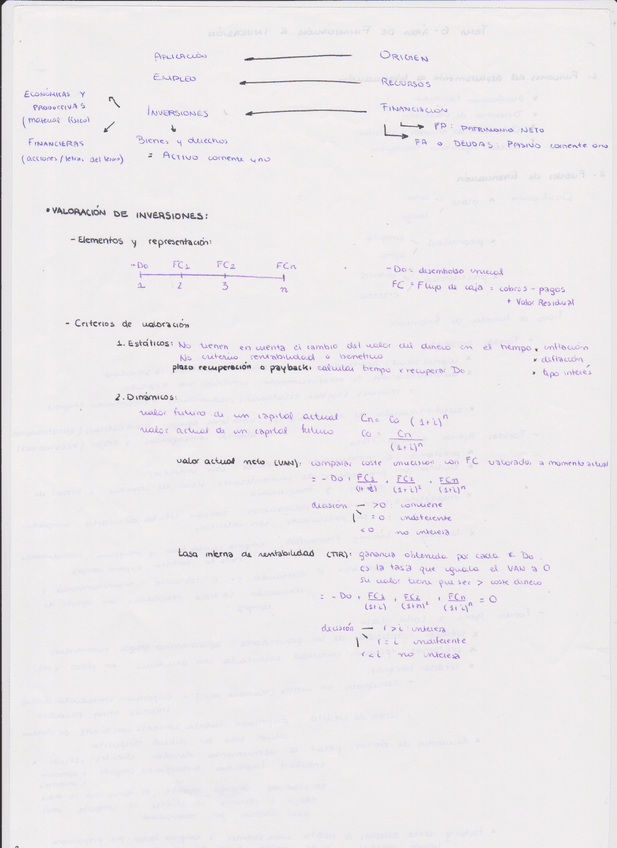 APLICACIÓN ORIGEN
EMPLEO RECURSOS
ECONÓMICAS Y PRODUCTIVAS
(material físico)
INVERSIONES FINANCIACIÓN
PP: PATRIMONIO NETO
FINANCIERAS
(acciones/letras del tesoro)
Bienes y derechos
= ACTIVO corriente y no
PA o DEUDAS: PASIVO corriente o no
• VALORACIÓN DE INVERSIONES:
- Elementos y representación:
-Do FC1 FC2 FCn
1 2 3 n
-Do = desembolso inicial
FC = Flujo de caja = cobros - pagos
+ Valor Residual
- Criterios de valoración
1. Estáticos: No tienen en cuenta el cambio del valor del dinero con el tiempo • inflación
No criterio rentabilidad o beneficio • deflación
plazo recuperación o payback: calcular tiempo x recuperar Do. • tipo interés
2. Dinámicos:
valor futuro de un capital actual Cn = Co (1+i)^n
valor actual de un capital futuro Co = Cn / (1+i)^n
valor actual neto (VAN): comparar coste inversión con FC valorados a momento actual
= -Do + FC1/(1+i) + FC2/(1+i)² + FCn/(1+i)^n
decisión → >0 conviene
= 0 indiferente
<0 no interesa
tasa interna de rentabilidad (TIR): ganancia obtenida por cada € Do.
es la tasa que iguala el VAN a 0
su valor tiene que ser > coste dinero
= -Do + FC1/(1+i) + FC2/(1+n)² + FCn/(1+i)^n = 0
decisión → r > i interesa
r = i indiferente
r < i no interesa